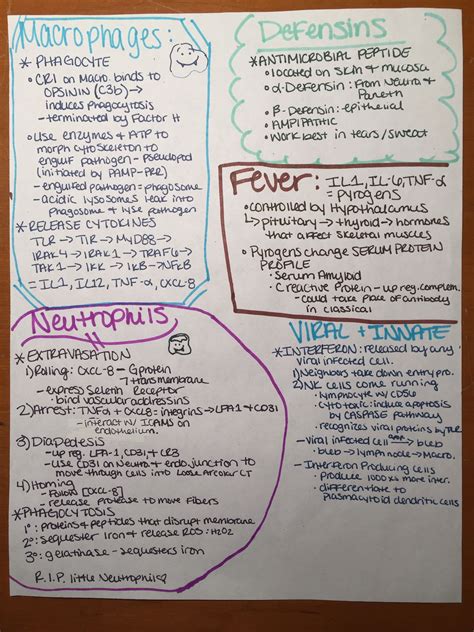 Macrophages:
* PHAGOCYTE
• CR1 on Macro. binds to
OPSININ (C3b) →
induces phagocytosis
- terminated by Factor H
• Use enzymes & ATP to
morph cytoskeleton to
engulf pathogen - pseudopod
(initiated by PAMP-PRR)
- engulfed pathogen - phagosome
- acidic lysosomes leak into
phagosome & lyse pathogen
* RELEASE CYTOKINES
TLR → TIR → MYD88 →
IRAK4 → IRAK1 → TRAF6 →
TAK1 → IKK → IKB → NFKB
= IL1, IL12, TNF-α, CXCL-8
Defensins
* ANTIMICROBIAL PEPTIDE
• located on skin & mucosa
• α-Defensin: From Neutro &
Paneth
• β-Defensin: epithelial
• AMPIPATHIC
• Work best in tears/sweat
Fever: IL1, IL-6, TNF-α
= Pyrogens
• controlled by Hypothalamus
↳ pituitary → thyroid → hormones
that affect skeletal muscles
• Pyrogens change SERUM PROTEIN
PROFILE
• Serum Amyloid
• C reactive Protein - up reg. complem.
- could take place of antibody
in classical
Neutrophils
* EXTRAVASATION
1) Rolling: CXCL-8 - G protein
7 transmembrane
- express Selectin Receptor
- bind vascular addressins
2) Arrest: TNFα + CXCL8: integrins → LFA1 & CD31
- interact w/ ICAMS on
endothelium.
3) Diapedesis
- up reg. LFA-1, CD31, & CR3
- Use CD31 on Neutro & endo. junction to
move through cells into Loose Areolar CT
4) Homing
- Follow [CXCL-8]
- release protease to move Fibers
* PHAGIOCYTOSIS
1°: proteins & peptides that disrupt membrane
2°: sequester iron & release ROS: H2O2
3°: gelatinase - sequesters iron
R.I.P. little Neutrophil♡
VIRAL + INNATE
* INTERFERON: released by any
viral infected cell.
1) Neighbors take down entry pro.
2) NK cells come running
• lymphocyte w/ CD56
• cytotoxic: induce apoptosis
by CASPASE pathway
• recognizes viral proteins by TLR
- viral infected cell → bleb
• bleb → lymph node → Macro.
- Interferon Producing Cells
• Produce 1000 xs more inter.
• differentiate to
plasmacytoid dendritic cells